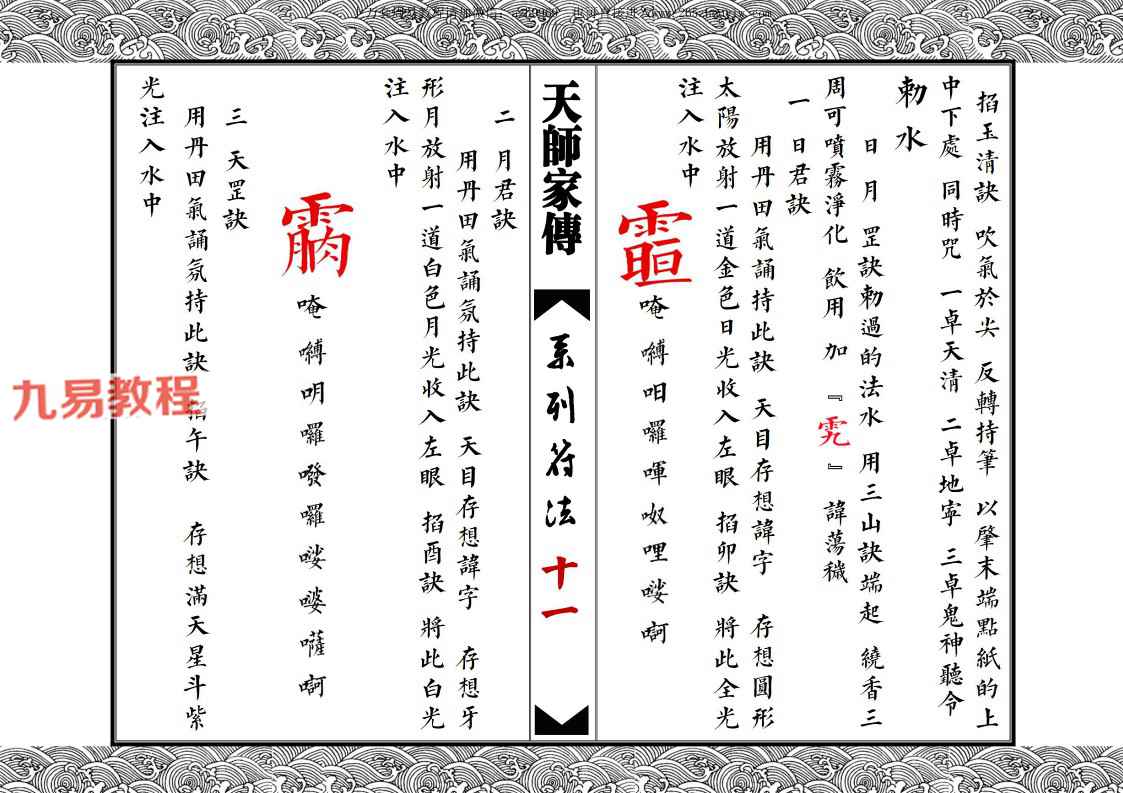 掐玉清訣 吹氣於尖 反轉持筆 以肇末端點紙的上
中下處 同時咒 一卓天清 二卓地寧 三卓鬼神聽令
勅水
日 月 罡訣勅過的法水 用三山訣端起 繞香三
周可噴霧淨化 飲用 加 『 』 諱蕩穢
一 日君訣
用丹田氣誦持此訣 天目存想諱字 存想圓形
太陽放射一道金色日光收入左眼 掐卯訣 將此全光
注入水中
唵 嚩 咱 囉 喗 呶 哩 娑 啊
天師家傳
系列符法
十一
二 月君訣
用丹田氣誦氛持此訣 天目存想諱字 存想牙
形月放射一道白色月光收入左眼 掐酉訣 將此白光
注入水中
唵 嚩 明 囉 發 囉 娑 婆 薩 啊
三 天罡訣
用丹田氣誦氛持此訣 掐午訣 存想滿天星斗紫
光注入水中
九易教程